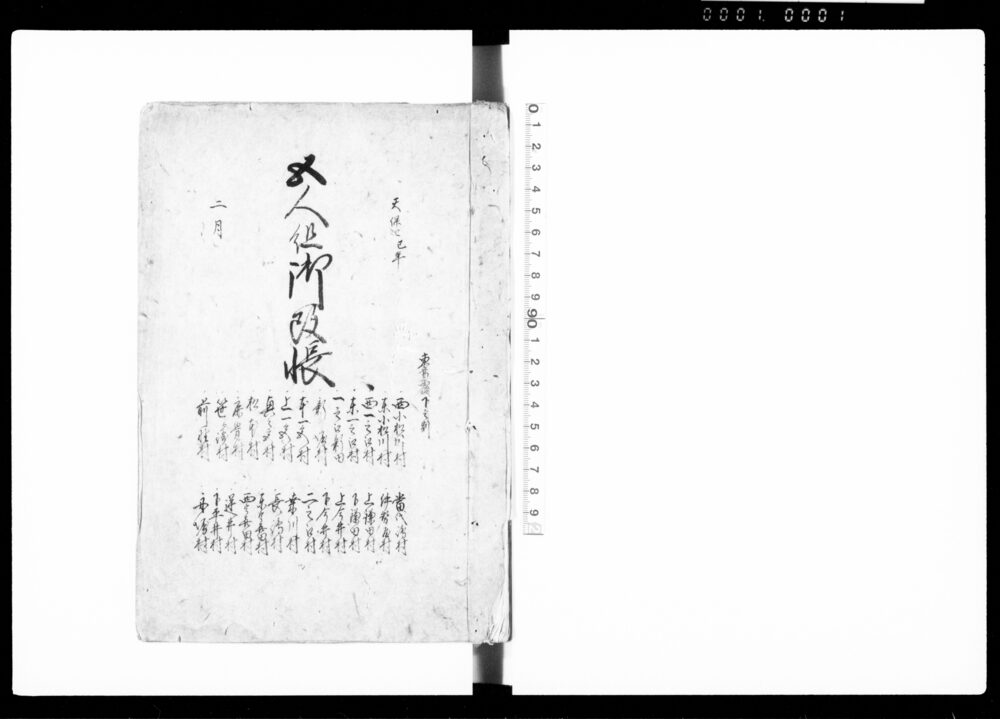 0001 0001
天保四巳年
五人組御改帳
二月
西小松川村
東小松川村
西一之江村
東一之江村
一之江新田
新堀村
本一色村
上一色村
興之宮村
松本村
鹿骨村
笹ヶ崎村
前野村
當代嶋村
上鎌田村
下鎌田村
上今井村
下今井村
二之江村
桑川村
長嶋村
東宇喜田村
西宇喜田村
逆井村
下平井村
0 1 2 3 4 5 6 7 8 9 90 1 2 3 4 5 6 7 8 9